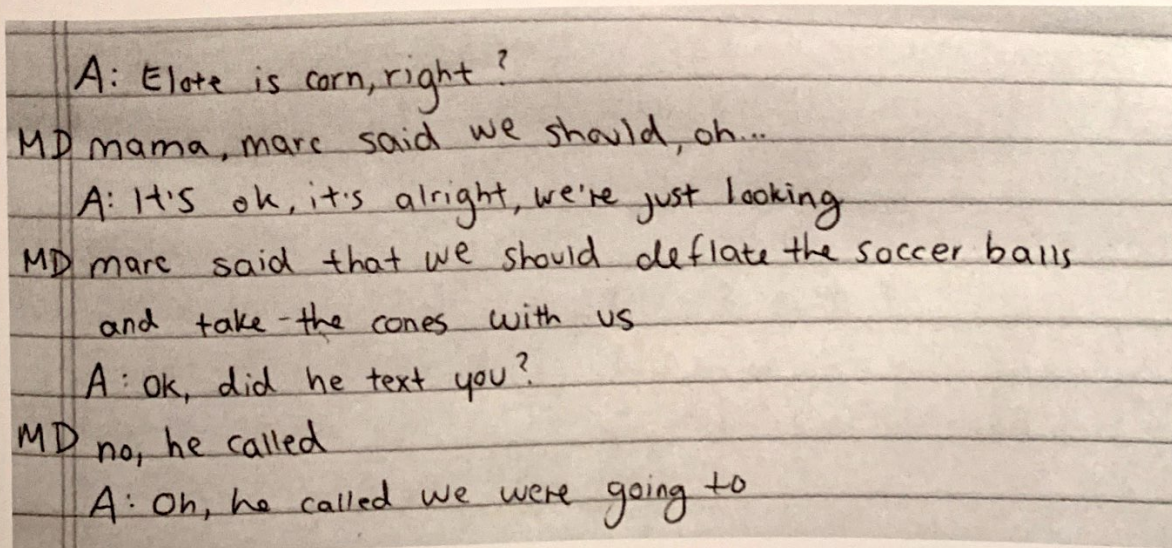 A: Elote is corn, right?
MD mama, marc said we should, oh...
A: It's ok, it's alright, we're just looking
MD marc said that we should deflate the soccer balls
and take the cones with us
A: ok, did he text you?
MD no, he called
A: Oh, he called we were going to